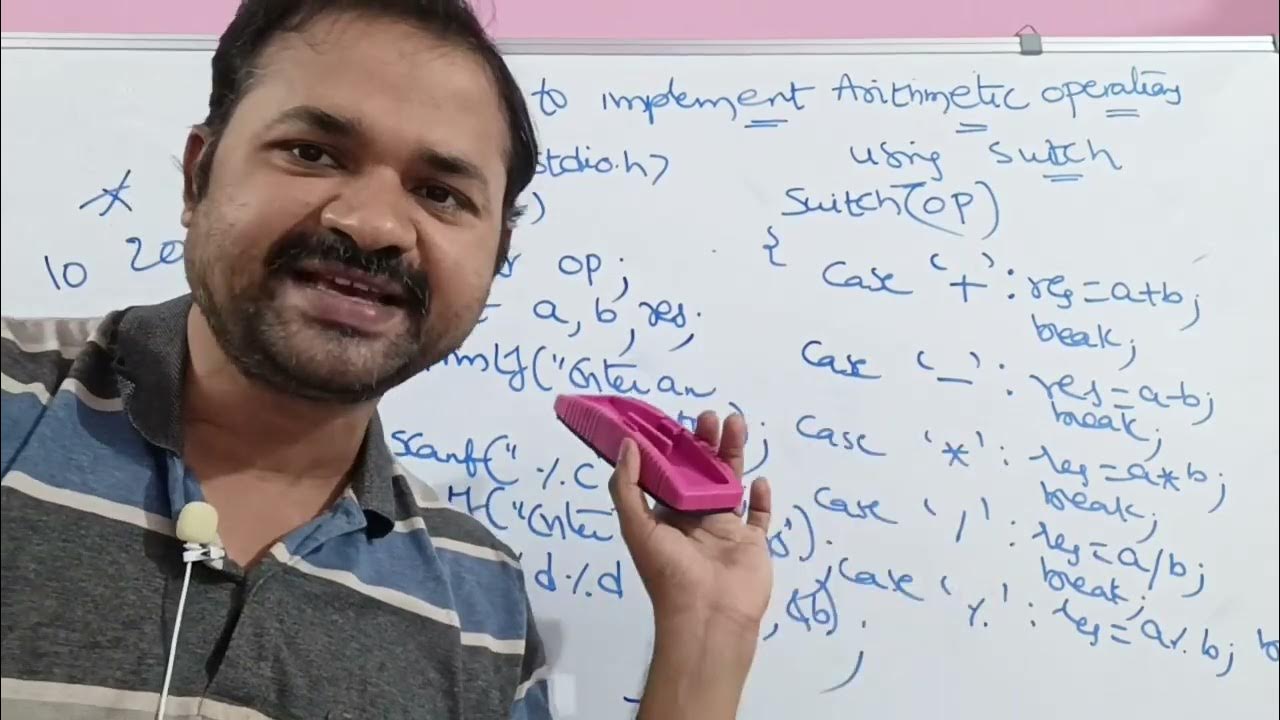 to implement Arithmetic operations
using switch
stdio.h>
)
*
10 20
op;
a, b, res;
("Enter an
);
scanf(" %c
("Enter
s').
d%d
, &b) ;
Switch(op)
{
Case '+': res=a+b;
break;
Case '-': res=a-b;
break;
Case '*': res=a*b;
break;
Case '/': res=a/b;
break;
Case '%': res=a%b; b